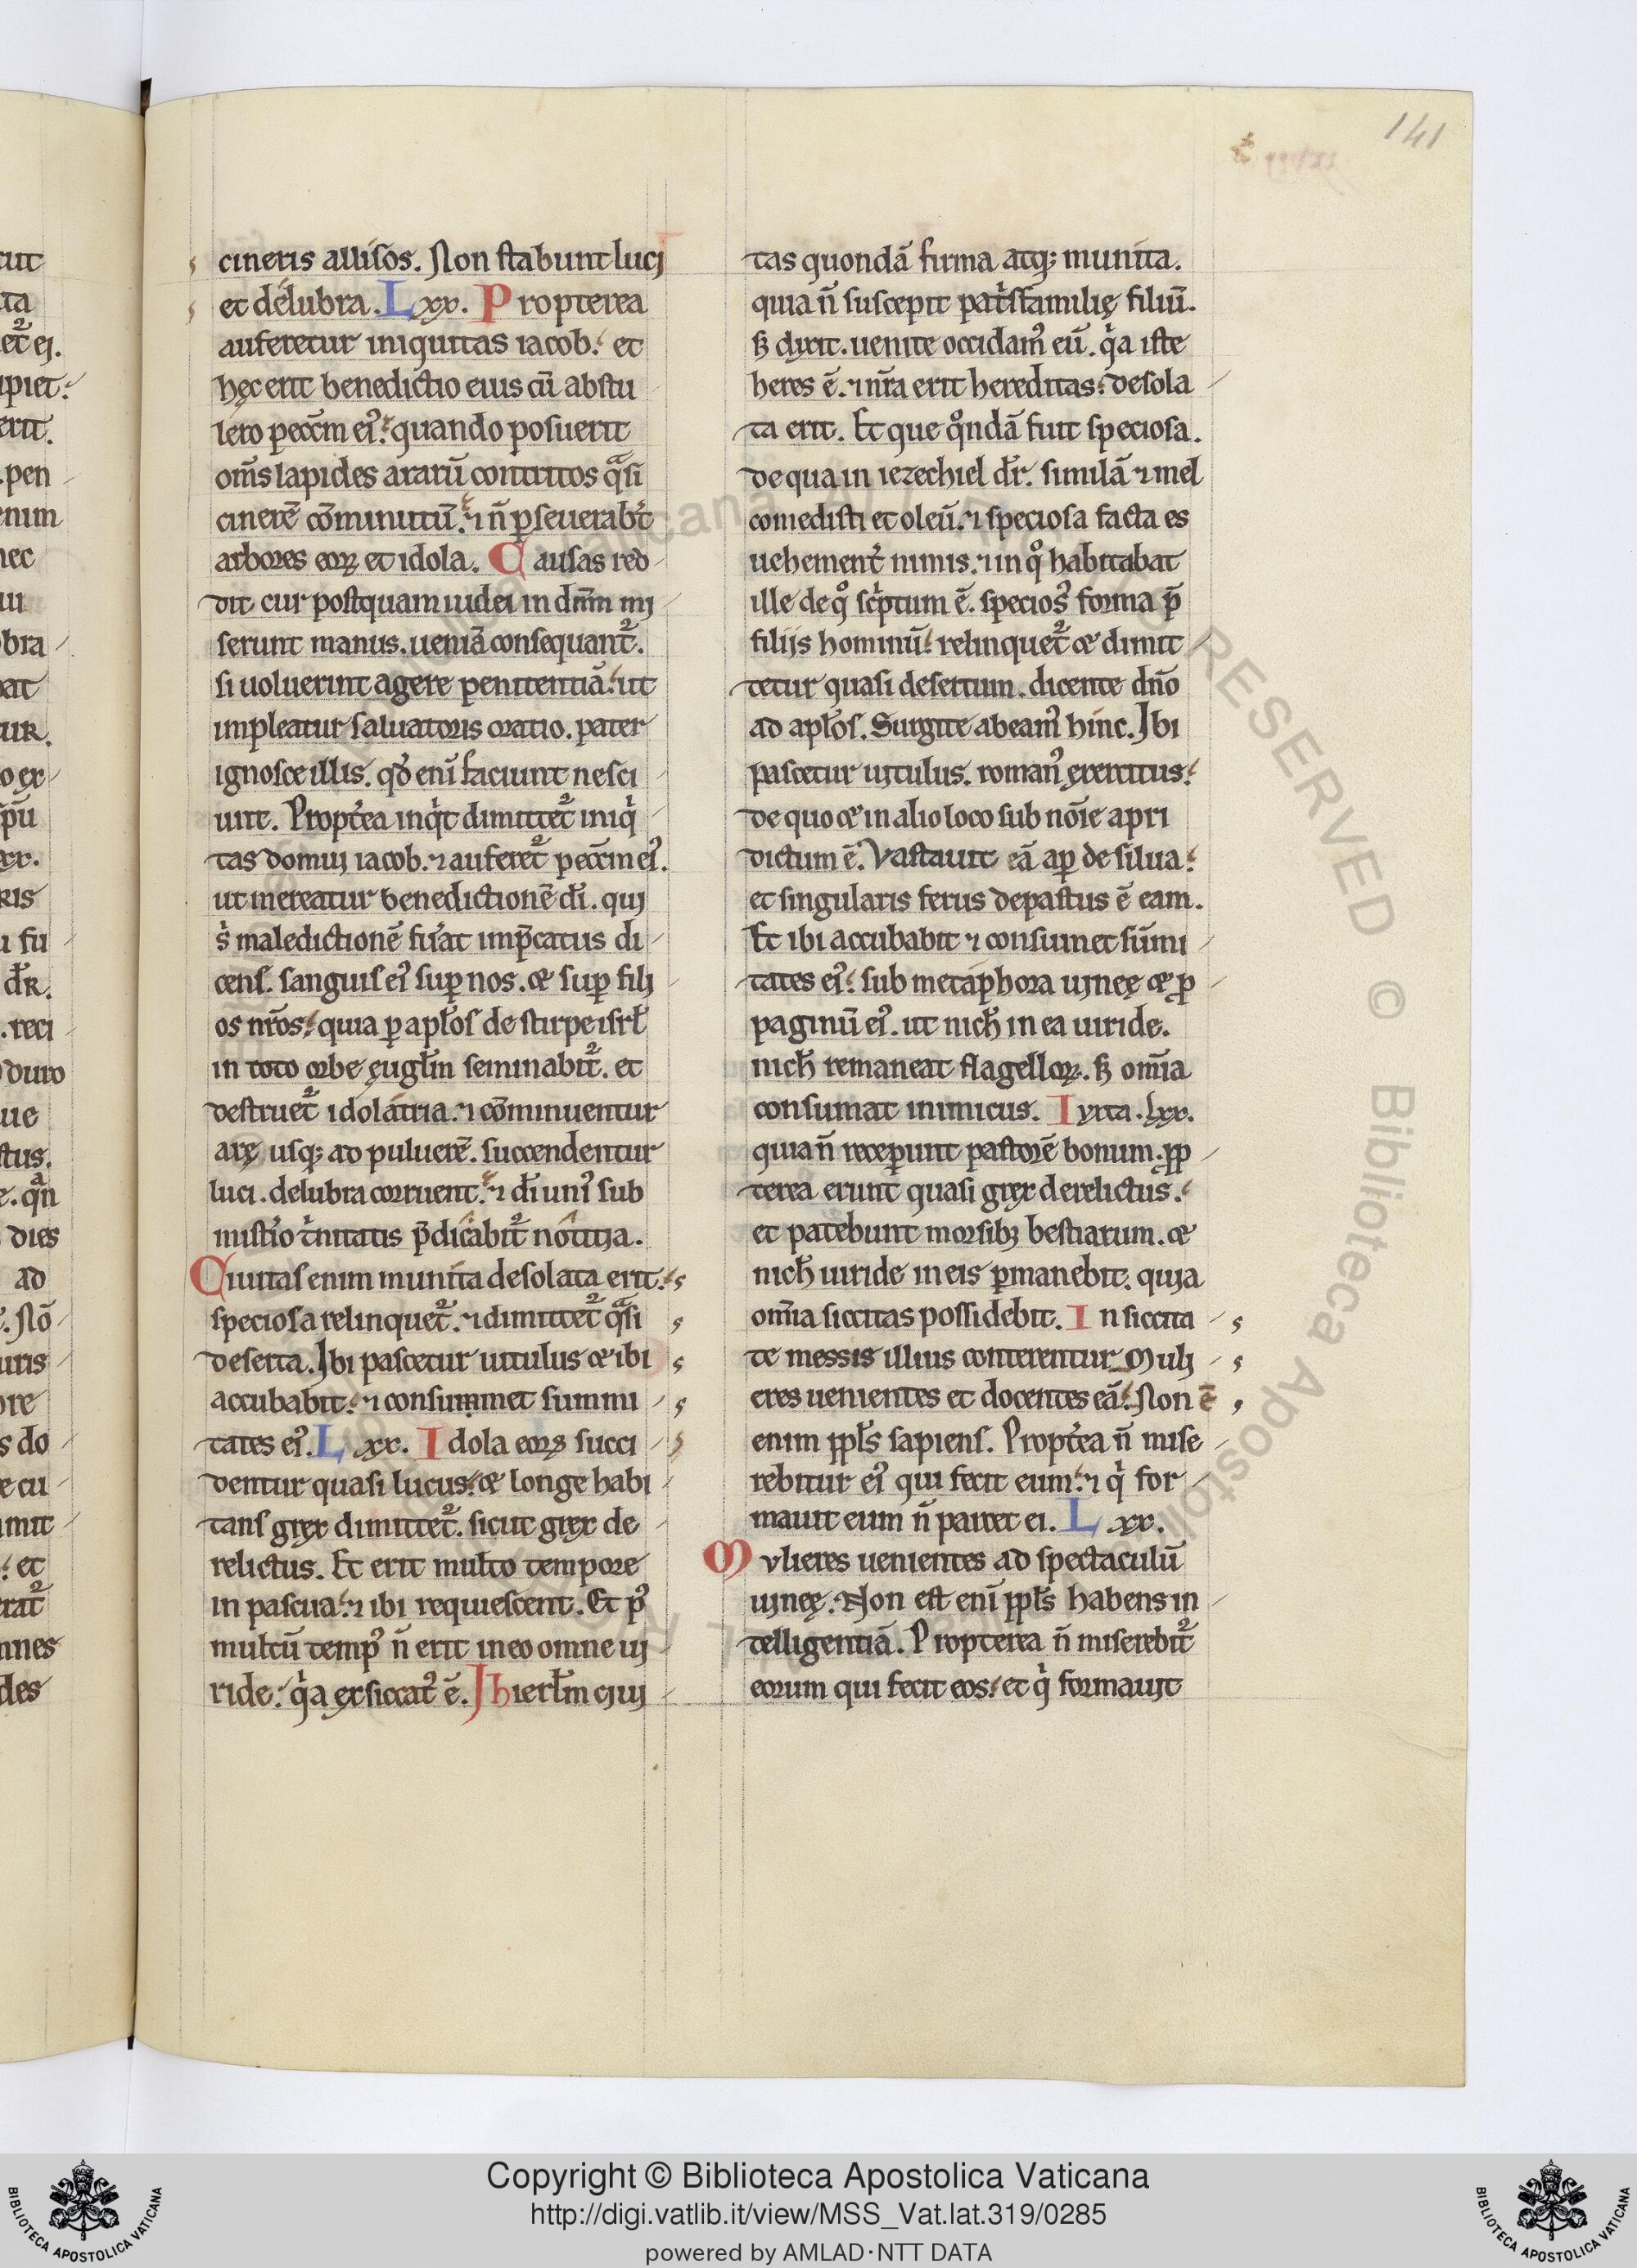 141
cineris allisos. Non stabunt luci
et delubra. Lxx. Propterea
auferetur iniquitas iacob. et
hęc erit benedictio eius cū abstu
lero pecc̄m ei᷒. quando posuerit
om̄s lapides ararū contritos qͣsi
cinerē cōminutū. ⁊ n̄ ꝑseuerab̄t
arbores eoꝝ et idola. Causas red
dit cur postquam iudei in dn̄m mi
serunt manus. ueniā consequant᷒.
si uoluerint agere penitentiā. ut
impleatur saluatoris oratio. pater
ignosce illis. qd̄ enī faciunt nesci
unt. Propt̾ea inqͥt dimittet᷒ iniqͥ
tas domui iacob. ⁊ auferet᷒ pecc̄m ei᷒.
ut mereatur benedictionē dī. qui
s̾ maledictionē fu̾at imp̄catus di
cens. sanguis ei᷒ suꝑ nos. ⁊ suꝑ filij
os nr̄os. quia ꝑ apl̄os de stirpe isrl̄
in toto orbe ęugl̄m seminabit᷒. et
destruet᷒ idolatria. ⁊ cōminuentur
arę usq; ad puluerē. succendentur
luci. delubra corruent. ⁊ dī uni᷒ sub
mist̾io tͥnitatis p̄dicabit᷒ notitia.
Ciuitas enim munita desolata erit.
speciosa relinquet᷒. ⁊ dimittet᷒ qͣsi
deserta. Ibi pascetur uitulus ⁊ ibi
accubabit. ⁊ consummet summi
tates ei᷒. Lxx. Idola eoꝝ succi
dentur quasi lucus. ⁊ longe habi
tans gręx dimittet᷒. sicut gręx de
relictus. Et erit multo tempore
in pascua. ⁊ ibi requiescent. Et p᷒
multū temp᷒ n̄ erit in eo omne ui
ride. qͥa exsiccat᷒ ē. Ihierl̄m ciui
tas quondā firma atq; munita.
quia n̄ suscepit pat̾sfamilię filiū.
sꝫ dixit. uenite occidam᷒ eū. qͥa iste
heres ē. ⁊ nr̄a erit hereditas. desola
ta erit. Et que qͦndā fuit speciosa.
de qua in iezechiel dr̄. similā ⁊ mel
comedisti et oleū. ⁊ speciosa facta es
uehement̾ nimis. ⁊ in qͦ habitabat
ille de qͦ scͥptum ē. specios᷒ forma p̄
filijs hominū. relinquet᷒ ⁊ dimit
tetur quasi desertum. dicente dn̄o
ad apl̄os. Surgite abeam᷒ hinc. Ibi
pascetur uitulus. roman᷒ exercitus.
de quo ⁊ in alio loco sub noīe apri
dictum ē. Vastauit eā aꝑ de silua.
et singularis ferus depastus ē eam.
Et ibi accubabit ⁊ consumet sūmi
tates ei᷒. sub metaphora uinęę ⁊ ꝓ
paginū ei᷒. ut nich̄ in ea uiride.
nich̄ remaneat flagelloꝝ. sꝫ om̄ia
consumat inimicus. Iuxta .lxx.
quia n̄ receperunt pastorē bonum. ꝓp
terea erunt quasi gręx derelictus.
et patebunt morsibꝫ bestiarum. ⁊
nich̄ uiride in eis ꝑmanebit. quia
om̄ia siccitas possidebit. In siccita
te messis illius conterentur. Muli
eres uenientes et docentes eā. Non ē
enim ppl̄s sapiens. Propt̾ea n̄ mise
rebitur ei᷒ qui fecit eum. ⁊ qͥ for
mauit eum n̄ parcet ei. Lxx.
Mvlieres uenientes ad spectaculū
uinęę. Non est enī ppl̄s habens in
telligentiā. Propterea n̄ miserebit᷒
eorum qui fecit eos. et qͥ formauit
Copyright © Biblioteca Apostolica Vaticana
http://digi.vatlib.it/view/MSS_Vat.lat.319/0285
powered by AMLAD·NTT DATA
BIBLIOTECA APOSTOLICA VATICANA
BIBLIOTECA APOSTOLICA VATICANA